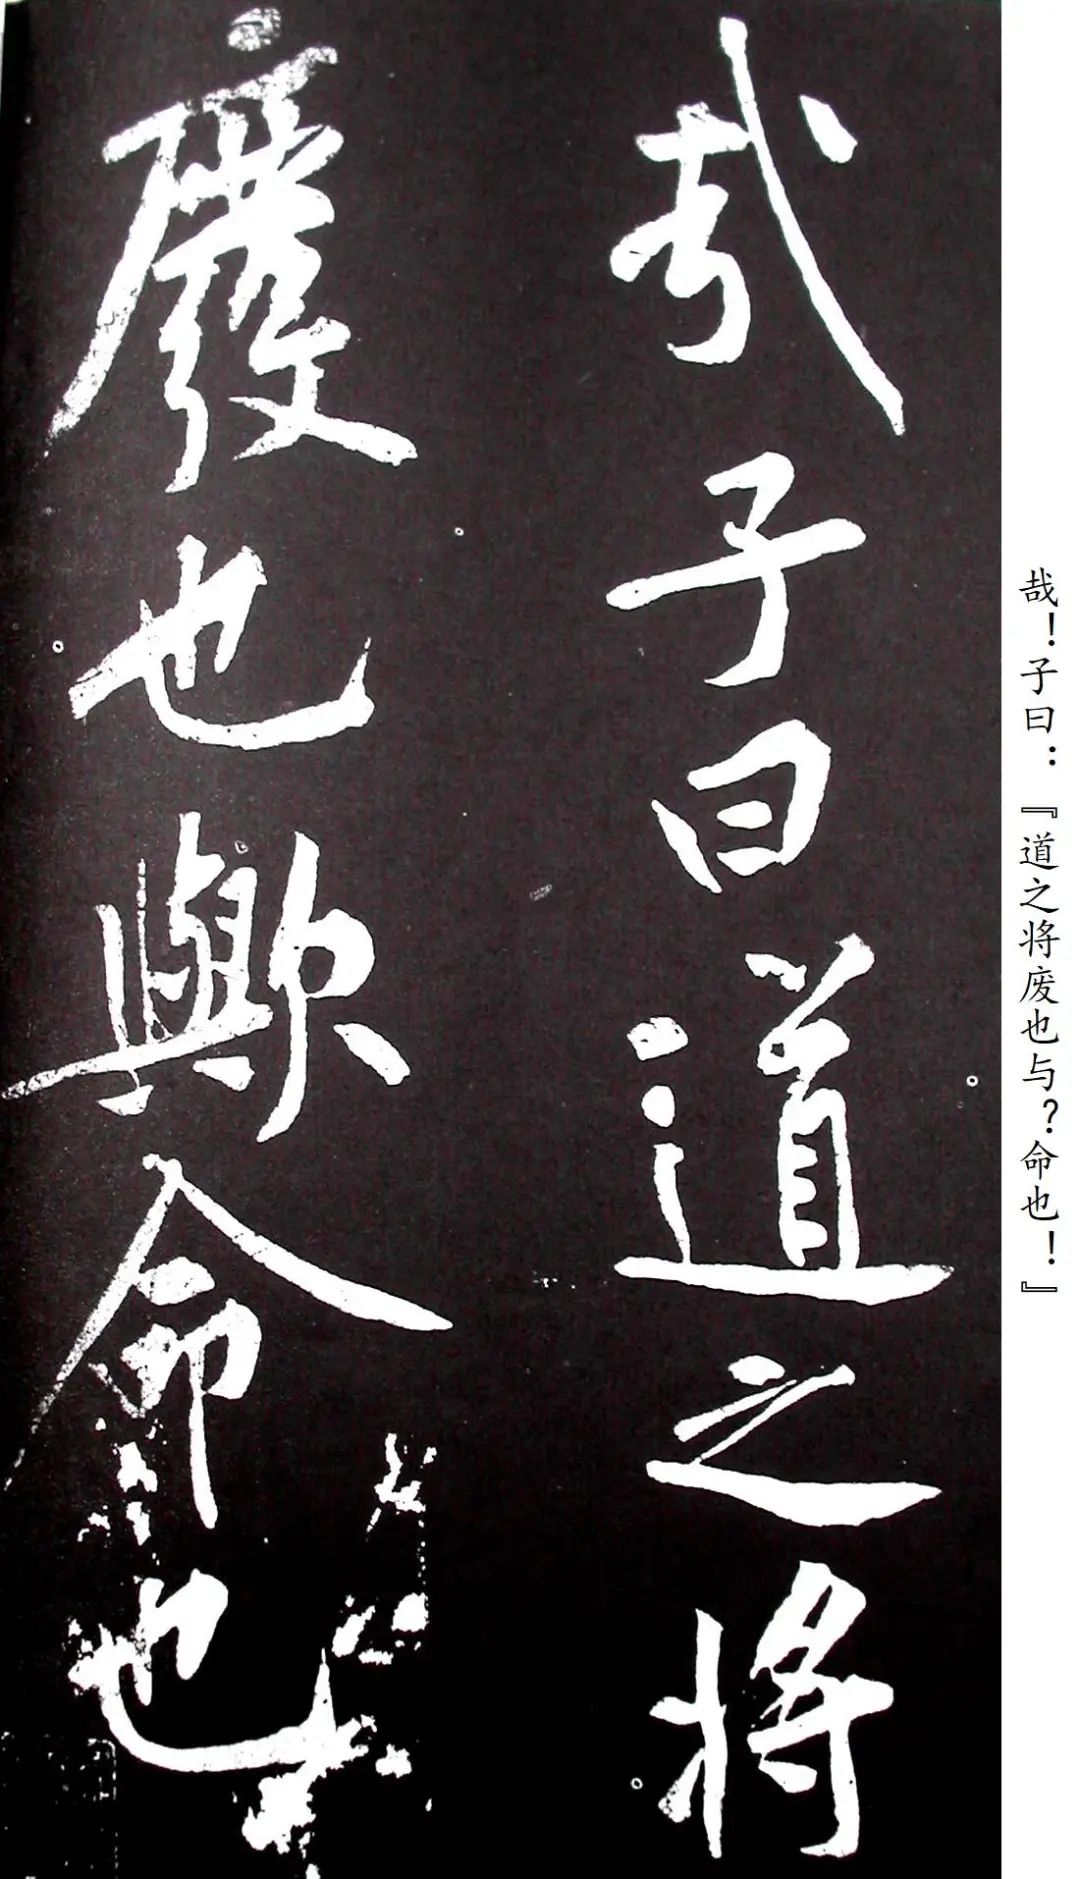 哉子曰道之将
廢也歟命也
哉！子曰：『道之将废也与？命也！』